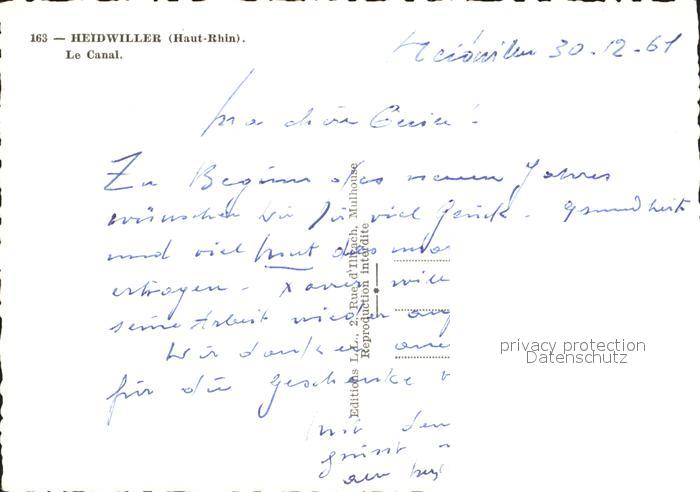 163 — HEIDWILLER (Haut-Rhin).
Le Canal.
Heidwiller 30.12.61
Ma chère
Zu Beginn des neuen Jahres
wünschen wir dir viel Glück. Gesundheit
und viel Mut das
ertragen. Xavier will
seine Arbeit wieder
Wir danken
für die Geschenke
mit den
grüsst
Editions L.L., 2, Rue d'Illzach, Mulhouse
Reproduction interdite
privacy protection
Datenschutz